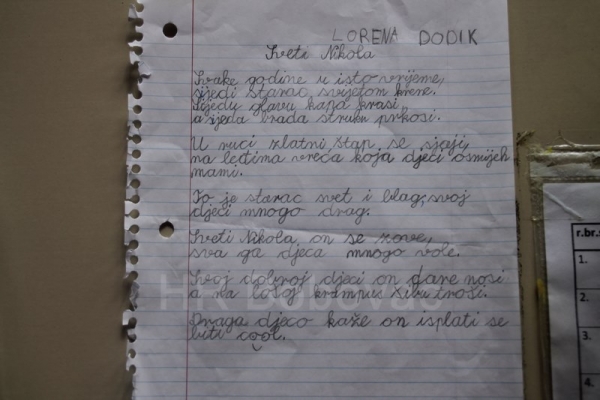 LORENA DODIK
Sveti Nikola
Svake godine u isto vrijeme,
sijedi starac svijetom krene.
Sijedu glavu kapa krasi,
a sijeda brada struku prkosi.
U ruci zlatni štap se sjaji,
na leđima vreća koja djeci osmijeh
mami.
To je starac svet i blag, svoj
djeci mnogo drag.
Sveti Nikola on se zove,
sva ga djeca mnogo vole.
Svoj dobroj djeci on dare nosi
a na lošoj krampus šibu troši.
Draga djeco kaže on isplati se
biti cool.
r.br.
1.
2.
3.
4.